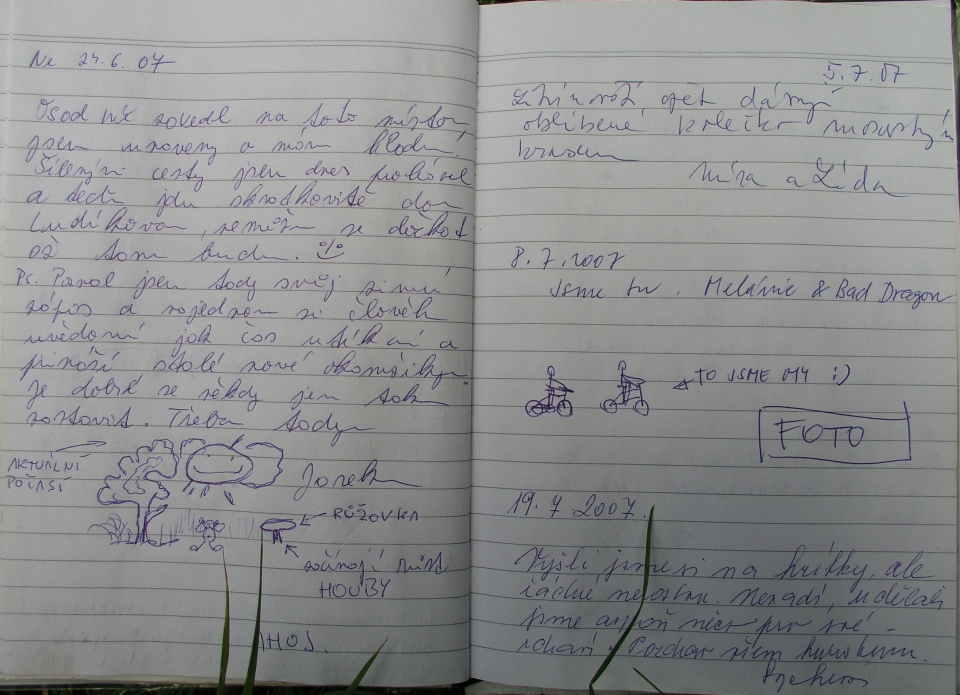 Ne 24.6.07
Osud mě zavedl na toto místo,
jsem unavený a mám hlad.
Šílenými cesty jsem dnes
a teď jdu domů
Luďíkovan, nemůžu se dočkat
až tam budu.
Ps. Psal jsem tady svůj zimní
zápis a najednou si člověk
uvědomí jak čas utíká a
přináší stále nové okamžiky.
Je dobré se někdy jen tak
zastavit. Třeba tady.
AKTUÁLNÍ
POČASÍ
Jarek
RŮŽOVKA
začínají růst
HOUBY
AHOJ.
5.7.07
opět dávají
oblíbené kolečko moravským
krasem
Míra a Lída
8.7.2007
Jsme tu. Melánie & Bad Dragon
TO JSME MY :)
FOTO
19.7 2007.
Vyšli jsme si na hříbky, ale
žádné nerostou. Nevadí, udělali
jsme aspoň něco pro své
zdraví. Pozdrav všem